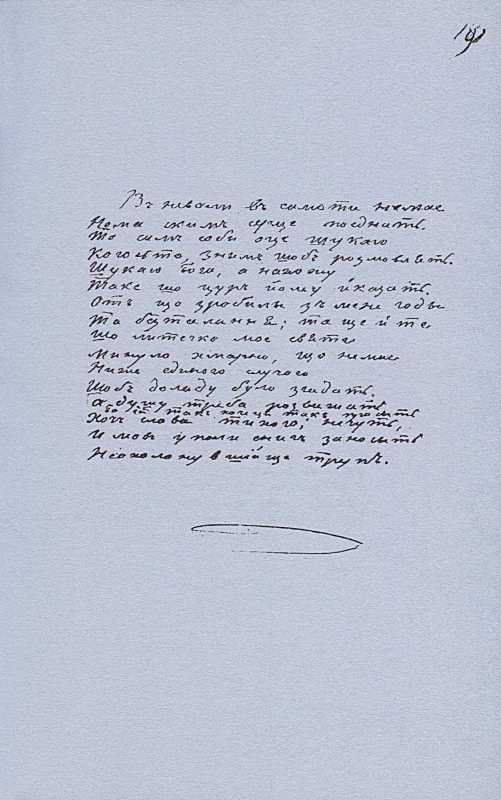 19
Въ неволи въ самоти немае
Нема скимъ серце поеднать.
То самъ соби оце шукаю
Когось то знимъ щобъ розмовлять.
Шукаю Бога, а нахожу
Таке що цуръ йому й казать.
Отъ що зробилы зъ мене годы
Та безталання; та ще й те
що литечко мое святе
Минуло хмарно, що немае
Ниже единого случая
Щобъ доладу було згадать.
А душу треба розважать,
Бо їй такъ хочець такъ просыть
Хоч слова тихого; нечуть,
И мовъ у поли снигъ заносыть
Неохолонувшій ще трупъ.